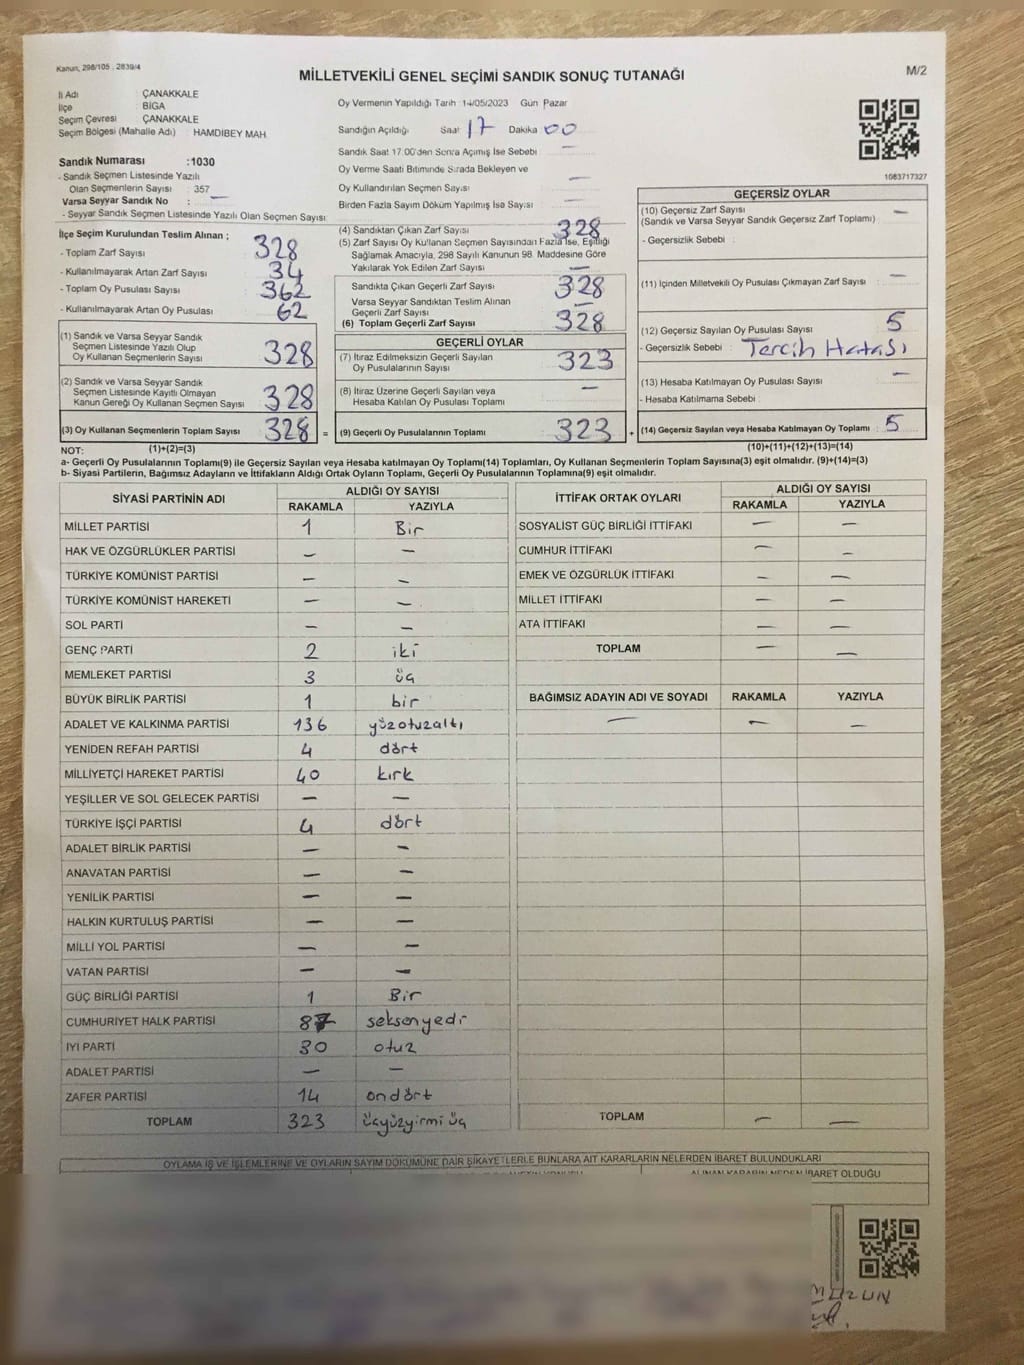 Kanun, 298/105 , 2839/4
MİLLETVEKİLİ GENEL SEÇİMİ SANDIK SONUÇ TUTANAĞI
M/2
İl Adı : ÇANAKKALE
İlçe : BİGA
Seçim Çevresi : ÇANAKKALE
Seçim Bölgesi (Mahalle Adı) : HAMDİBEY MAH.
Oy Vermenin Yapıldığı Tarih : 14/05/2023 Gün Pazar
Sandığın Açıldığı Saat 17 Dakika 00
Sandık Saat 17:00'den Sonra Açılmış İse Sebebi : —
Oy Verme Saati Bitiminde Sırada Bekleyen ve
Oy Kullandırılan Seçmen Sayısı —
Birden Fazla Sayım Döküm Yapılmış İse Sayısı : —
1083717327
Sandık Numarası :1030
- Sandık Seçmen Listesinde Yazılı
Olan Seçmenlerin Sayısı : 357
Varsa Seyyar Sandık No : —
- Seyyar Sandık Seçmen Listesinde Yazılı Olan Seçmen Sayısı:
İlçe Seçim Kurulundan Teslim Alınan ;
- Toplam Zarf Sayısı 328
- Kullanılmayarak Artan Zarf Sayısı 34
- Toplam Oy Pusulası Sayısı 362
- Kullanılmayarak Artan Oy Pusulası 62
(1) Sandık ve Varsa Seyyar Sandık
Seçmen Listesinde Yazılı Olup
Oy Kullanan Seçmenlerin Sayısı 328
(2) Sandık ve Varsa Seyyar Sandık
Seçmen Listesinde Kayıtlı Olmayan
Kanun Gereği Oy Kullanan Seçmen Sayısı 328
(3) Oy Kullanan Seçmenlerin Toplam Sayısı 328 =
(4) Sandıktan Çıkan Zarf Sayısı 328
(5) Zarf Sayısı Oy Kullanan Seçmen Sayısından Fazla İse, Eşitliği
Sağlamak Amacıyla, 298 Sayılı Kanunun 98. Maddesine Göre
Yakılarak Yok Edilen Zarf Sayısı —
Sandıkta Çıkan Geçerli Zarf Sayısı 328
Varsa Seyyar Sandıktan Teslim Alınan
Geçerli Zarf Sayısı —
(6) Toplam Geçerli Zarf Sayısı 328
GEÇERLİ OYLAR
(7) İtiraz Edilmeksizin Geçerli Sayılan
Oy Pusulalarının Sayısı 323
(8) İtiraz Üzerine Geçerli Sayılan veya
Hesaba Katılan Oy Pusulası Toplamı —
(9) Geçerli Oy Pusulalarının Toplamı 323 +
GEÇERSİZ OYLAR
(10) Geçersiz Zarf Sayısı —
(Sandık ve Varsa Seyyar Sandık Geçersiz Zarf Toplamı)
- Geçersizlik Sebebi :
(11) İçinden Milletvekili Oy Pusulası Çıkmayan Zarf Sayısı —
(12) Geçersiz Sayılan Oy Pusulası Sayısı 5
- Geçersizlik Sebebi : Tercih Hatası
(13) Hesaba Katılmayan Oy Pusulası Sayısı —
- Hesaba Katılmama Sebebi :
(14) Geçersiz Sayılan veya Hesaba Katılmayan Oy Toplamı 5
NOT: (1)+(2)=(3) (10)+(11)+(12)+(13)=(14)
a- Geçerli Oy Pusulalarının Toplamı(9) ile Geçersiz Sayılan veya Hesaba katılmayan Oy Toplamı(14) Toplamları, Oy Kullanan Seçmenlerin Toplam Sayısına(3) eşit olmalıdır. (9)+(14)=(3)
b- Siyasi Partilerin, Bağımsız Adayların ve İttifakların Aldığı Ortak Oyların Toplamı, Geçerli Oy Pusulalarının Toplamına(9) eşit olmalıdır.
SİYASİ PARTİNİN ADI ALDIĞI OY SAYISI
RAKAMLA YAZIYLA
MİLLET PARTİSİ 1 Bir
HAK VE ÖZGÜRLÜKLER PARTİSİ — —
TÜRKİYE KOMÜNİST PARTİSİ — —
TÜRKİYE KOMÜNİST HAREKETİ — —
SOL PARTİ — —
GENÇ PARTİ 2 iki
MEMLEKET PARTİSİ 3 üç
BÜYÜK BİRLİK PARTİSİ 1 bir
ADALET VE KALKINMA PARTİSİ 136 yüzotuzaltı
YENİDEN REFAH PARTİSİ 4 dört
MİLLİYETÇİ HAREKET PARTİSİ 40 kırk
YEŞİLLER VE SOL GELECEK PARTİSİ — —
TÜRKİYE İŞÇİ PARTİSİ 4 dört
ADALET BİRLİK PARTİSİ — —
ANAVATAN PARTİSİ — —
YENİLİK PARTİSİ — —
HALKIN KURTULUŞ PARTİSİ — —
MİLLİ YOL PARTİSİ — —
VATAN PARTİSİ — —
GÜÇ BİRLİĞİ PARTİSİ 1 Bir
CUMHURİYET HALK PARTİSİ 87 seksenyedi
İYİ PARTİ 30 otuz
ADALET PARTİSİ — —
ZAFER PARTİSİ 14 ondört
TOPLAM 323 üçyüzyirmi üç
İTTİFAK ORTAK OYLARI ALDIĞI OY SAYISI
RAKAMLA YAZIYLA
SOSYALİST GÜÇ BİRLİĞİ İTTİFAKI — —
CUMHUR İTTİFAKI — —
EMEK VE ÖZGÜRLÜK İTTİFAKI — —
MİLLET İTTİFAKI — —
ATA İTTİFAKI — —
TOPLAM — —
BAĞIMSIZ ADAYIN ADI VE SOYADI RAKAMLA YAZIYLA
— — —
TOPLAM — —
OYLAMA İŞ VE İŞLEMLERİNE VE OYLARIN SAYIM DÖKÜMÜNE DAİR ŞİKAYETLERLE BUNLARA AİT KARARLARIN NELERDEN İBARET BULUNDUKLARI
ALINAN KARARIN NEDEN İBARET OLDUĞU